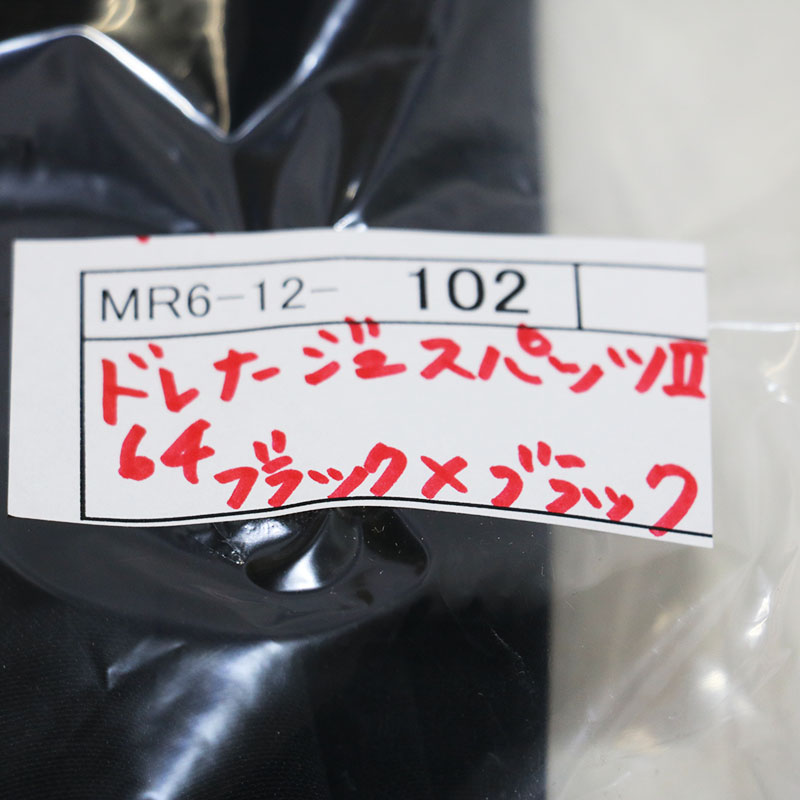 MR6-12- 102
ドレナージュスパッツⅡ
64 ブラック×ブラック